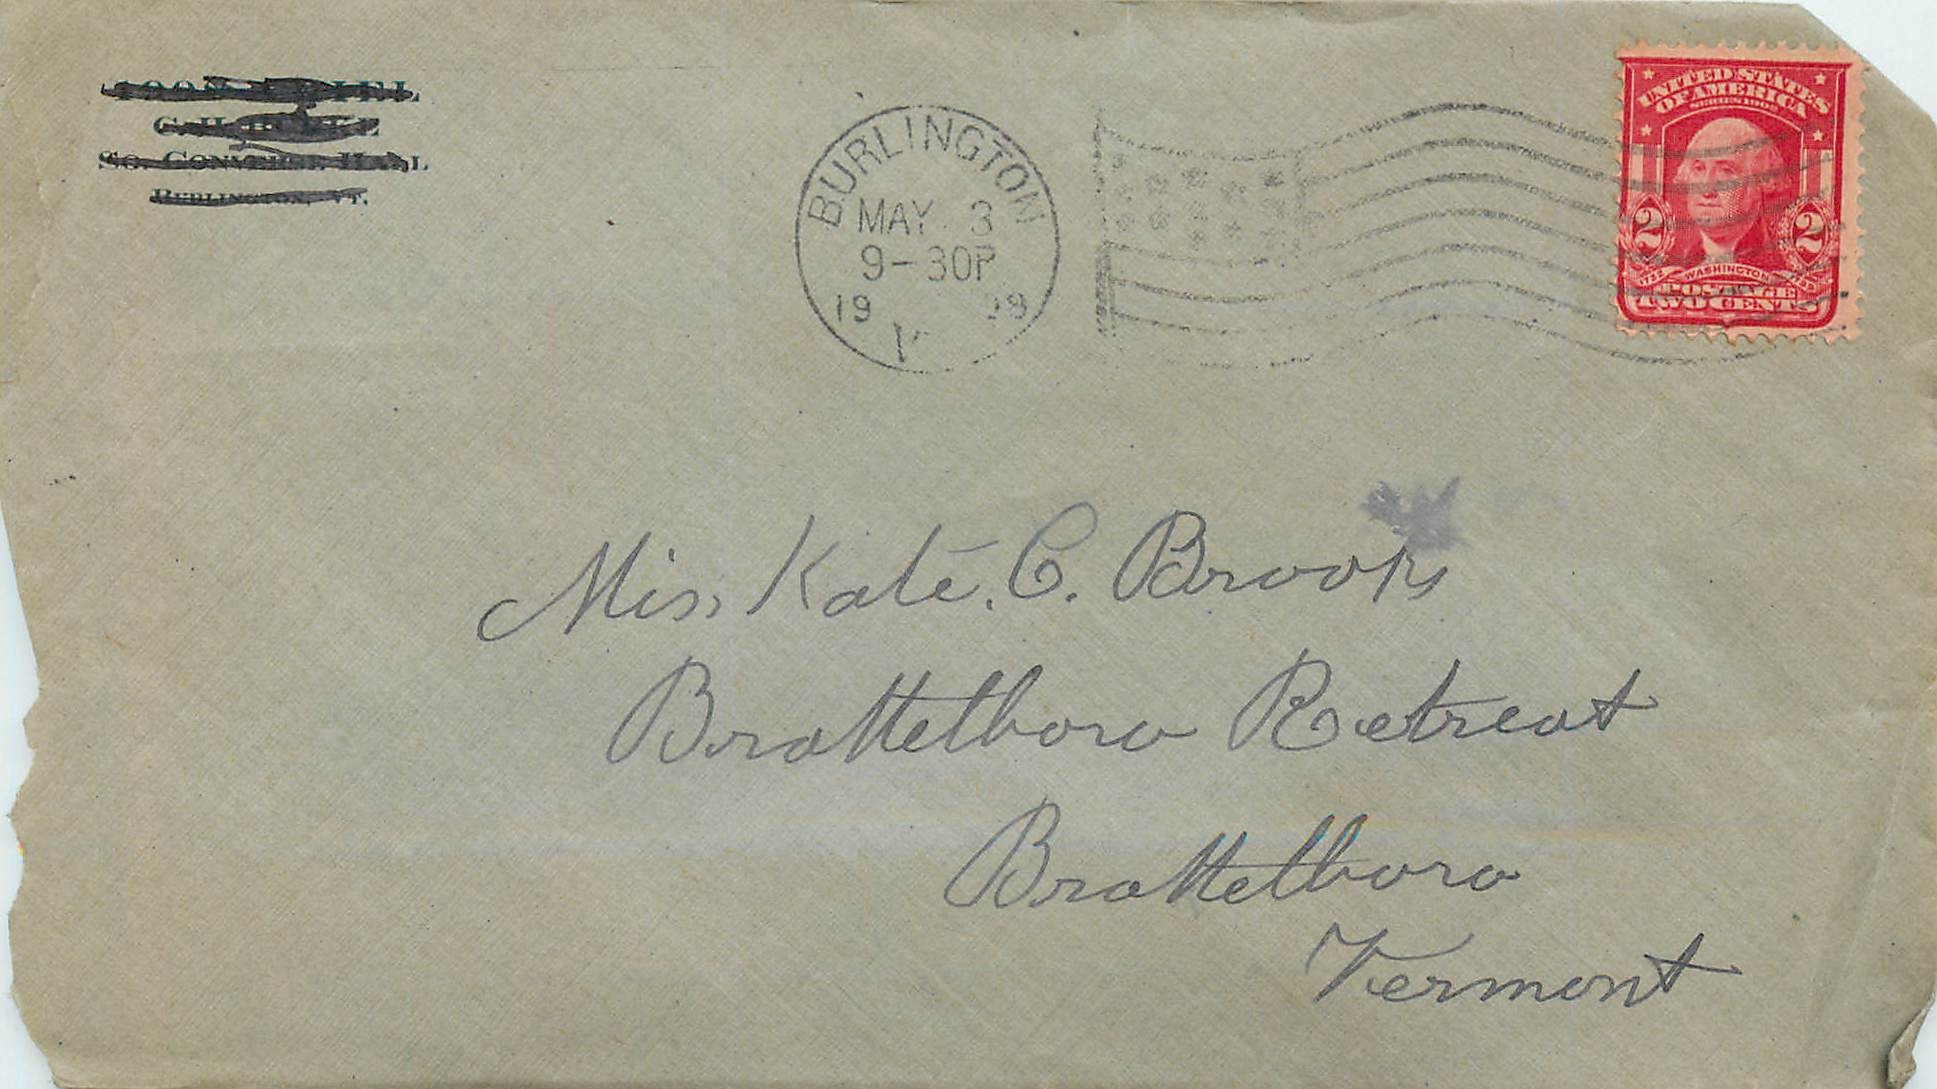 So. Converse Hall
Burlington, Vt.
BURLINGTON
MAY 3
9-30P
19 08
UNITED STATES
OF AMERICA
SERIES 1902
2 2
1732 WASHINGTON 1799
POSTAGE
TWO CENTS
Miss Kate. C. Brooks
Brattelboro Retreat
Brattelboro
Vermont